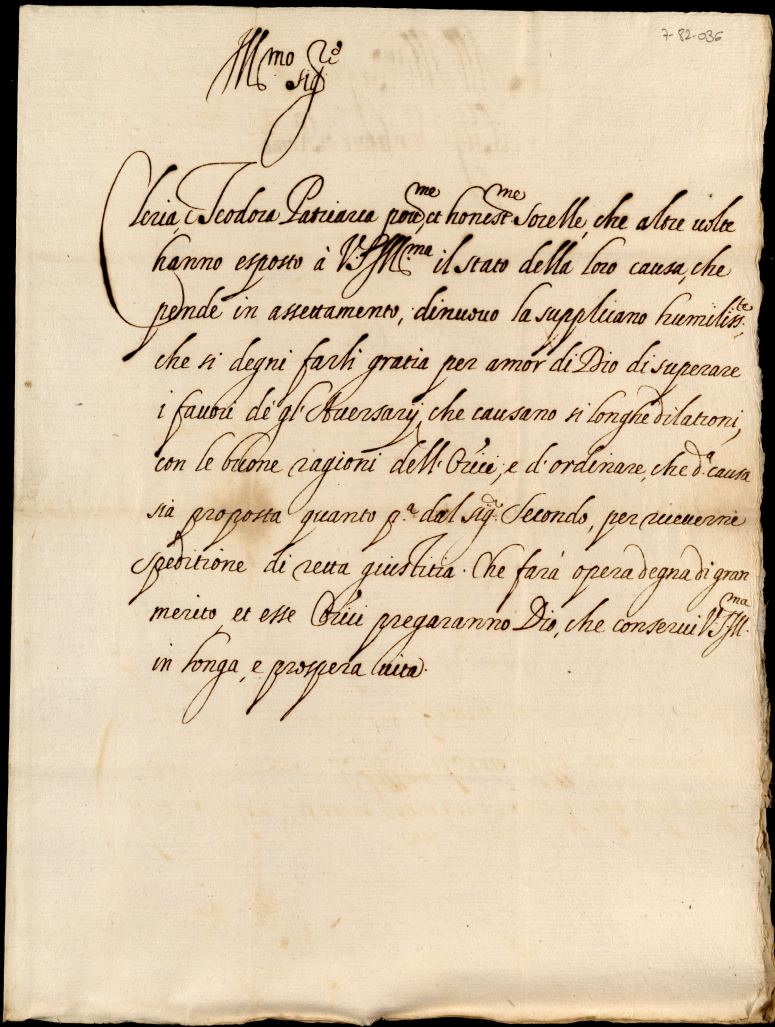 7-82-036
Ill.mo Sig.re
Cleria, e Teodora Patriarca pove.me, et honest.me Sorelle, che altre volte
hanno esposto à V.S. Ill.ma il stato della loro causa, che
pende in assettamento, dinuovo la supplicano humiliss.te,
che si degni farli gratia per amor di Dio di superare
i favori de gl'Aversarij, che causano si longhe dilationi,
con le buone ragioni dell'Orici, e d'ordinare, che d.a causa
sia proposta quanto p.a dal sig.r Secondo, per riceverne
speditione di retta giustitia. Che farà opera degna di gran
merito, et esse Orici pregaranno Dio, che conservi V.S. Ill.ma
in longa, e prospera vita.